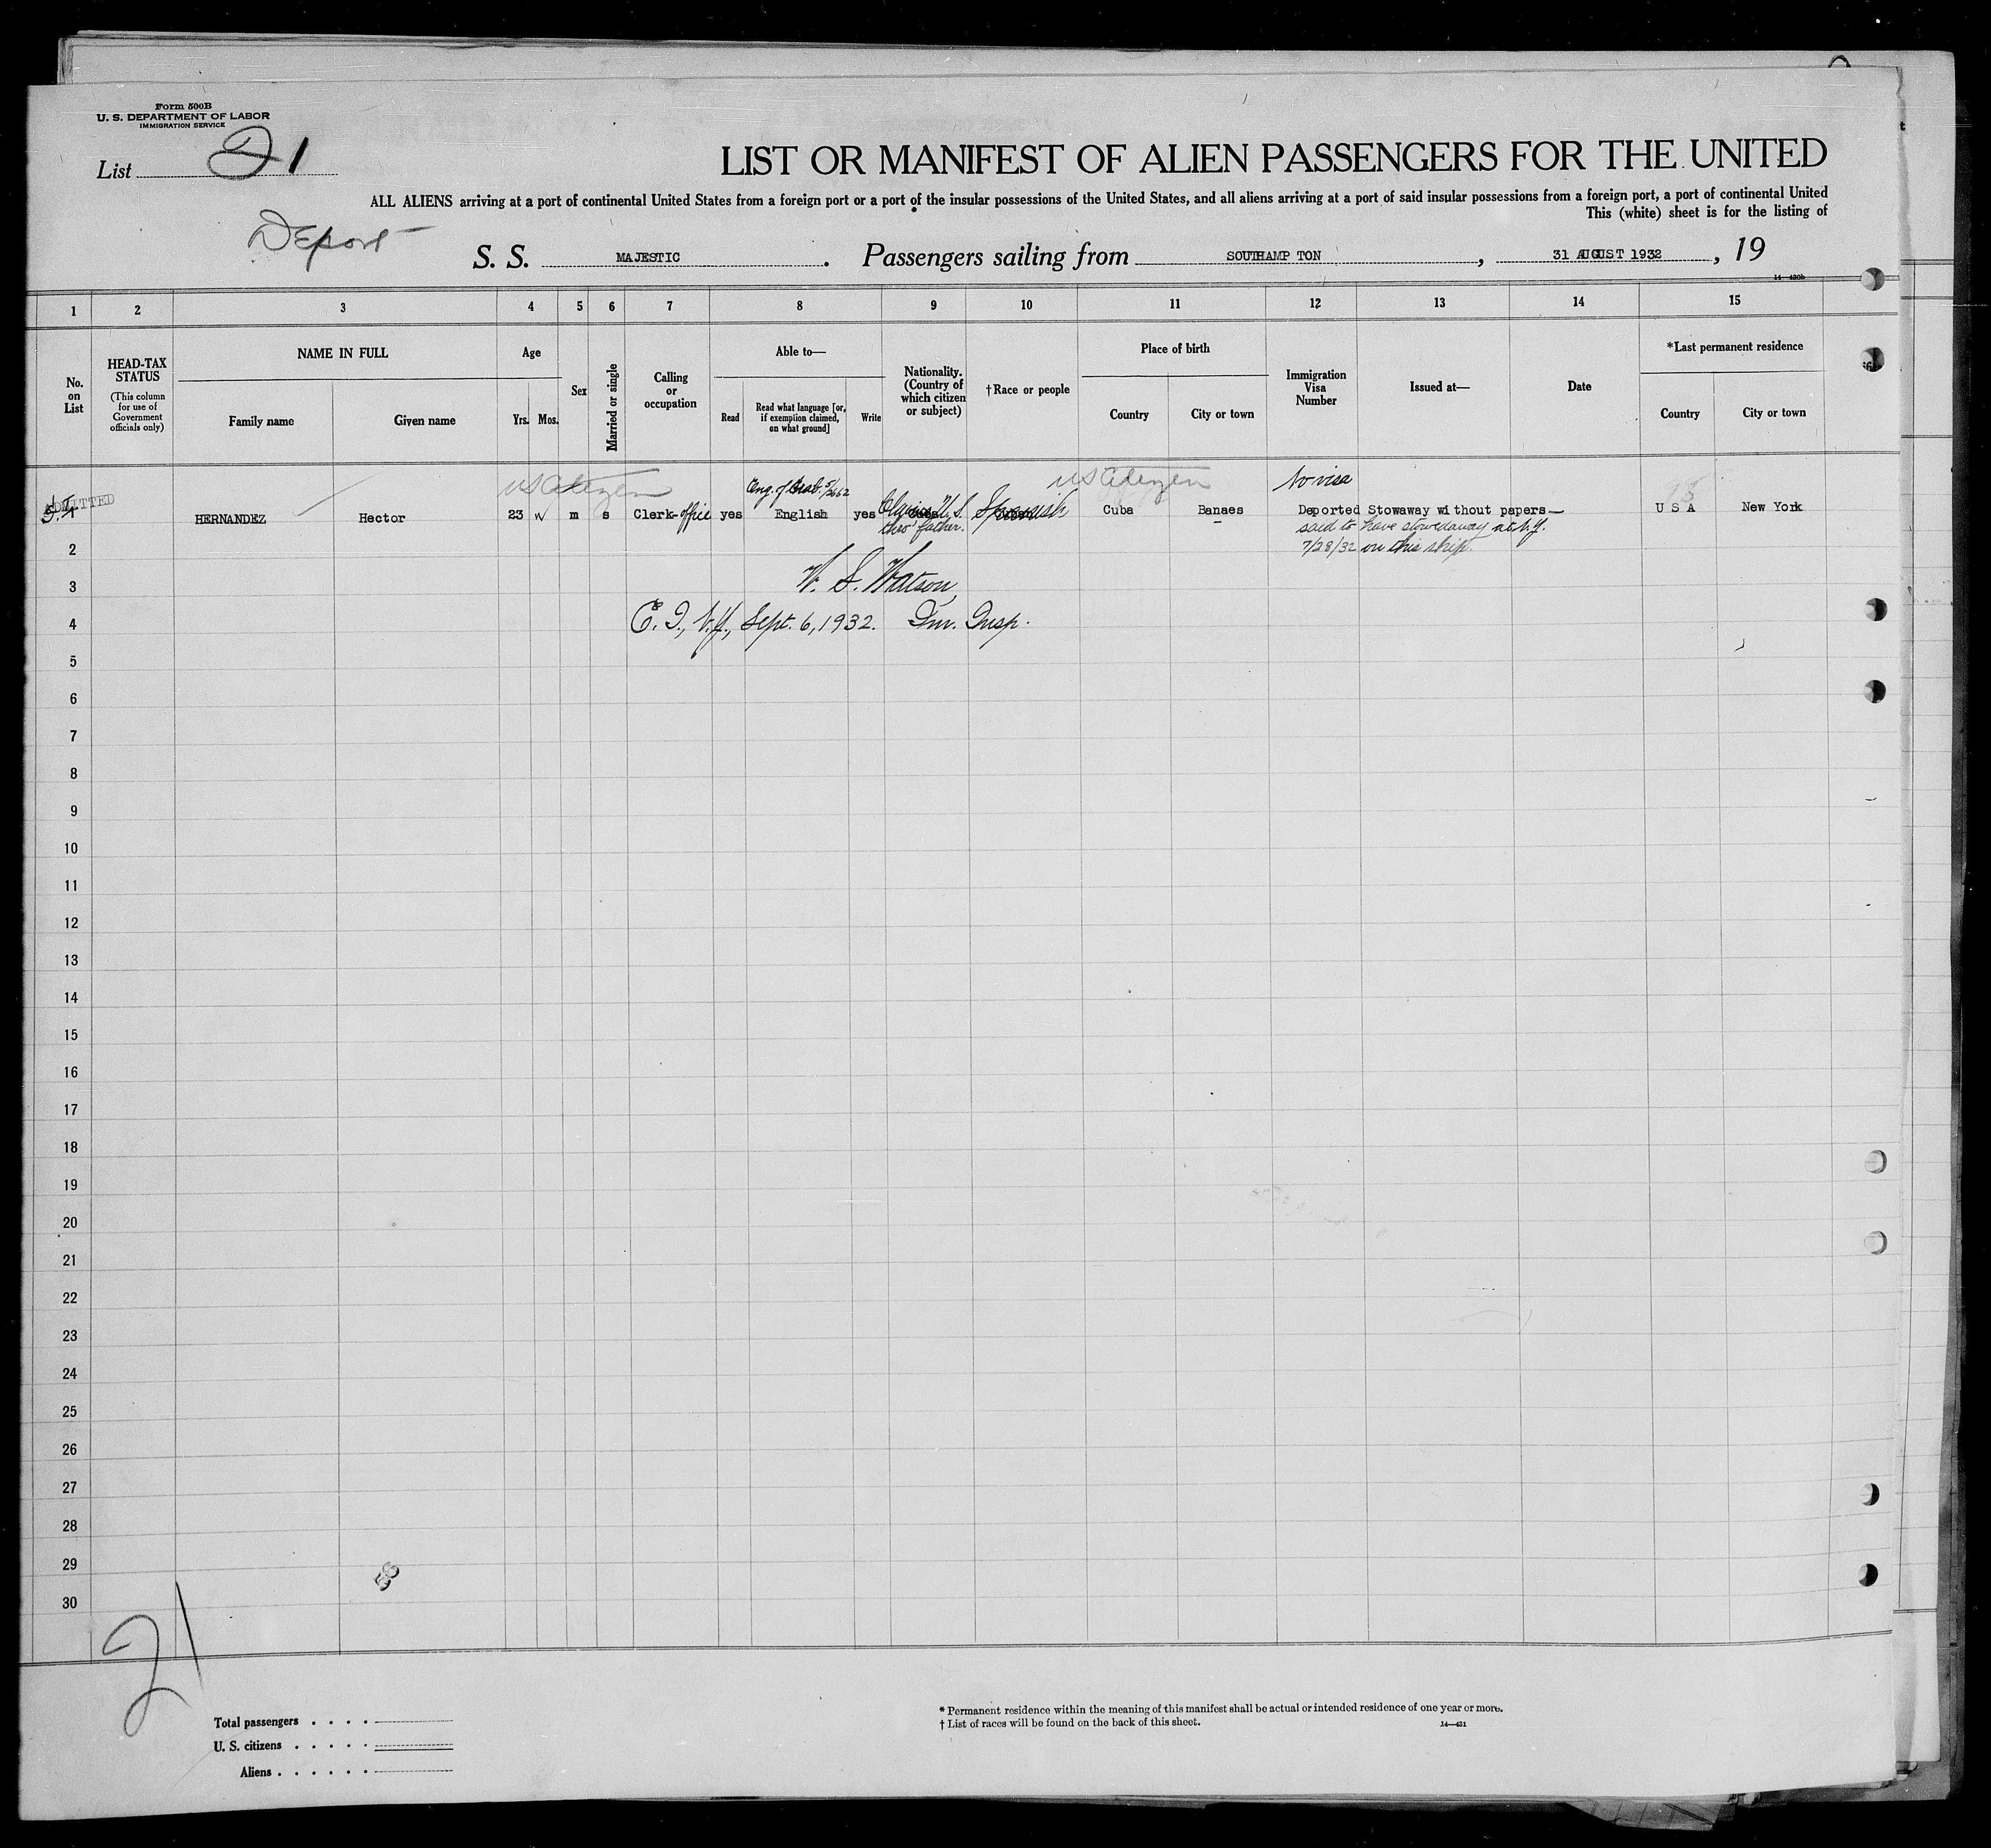 Form 500B
U. S. DEPARTMENT OF LABOR
IMMIGRATION SERVICE
List 21
LIST OR MANIFEST OF ALIEN PASSENGERS FOR THE UNITED
ALL ALIENS arriving at a port of continental United States from a foreign port or a port of the insular possessions of the United States, and all aliens arriving at a port of said insular possessions from a foreign port, a port of continental United
This (white) sheet is for the listing of
Deport
S. S. MAJESTIC. Passengers sailing from SOUTHAMP TON, 31 AUGUST 1932, 19
14—430b
1 2 3 4 5 6 7 8 9 10 11 12 13 14 15
No. on List
HEAD-TAX STATUS
(This column for use of Government officials only)
NAME IN FULL
Family name Given name
Age
Yrs. Mos.
Sex
Married or single
Calling or occupation
Able to—
Read
Read what language [or, if exemption claimed, on what ground]
Write
Nationality. (Country of which citizen or subject)
†Race or people
Place of birth
Country City or town
Immigration Visa Number
Issued at—
Date
*Last permanent residence
Country City or town
US Citizen US Citizen No visa
ADMITTED
HERNANDEZ Hector 23 m s Clerk-office yes English yes U. S. Spanish Cuba Banaes Deported Stowaway without papers— U S A New York
thro' father. said to have stowed away at N.Y.
7/28/32 on this ship.
2
W. S. Watson,
3
E. I., N.Y., Sept. 6, 1932. Imm. Insp.
4
5
6
7
8
9
10
11
12
13
14
15
16
17
18
19
20
21
22
23
24
25
26
27
28
29
30
21
Total passengers . . . .
U. S. citizens . . . . .
Aliens . . . . . .
* Permanent residence within the meaning of this manifest shall be actual or intended residence of one year or more.
† List of races will be found on the back of this sheet. 14—431